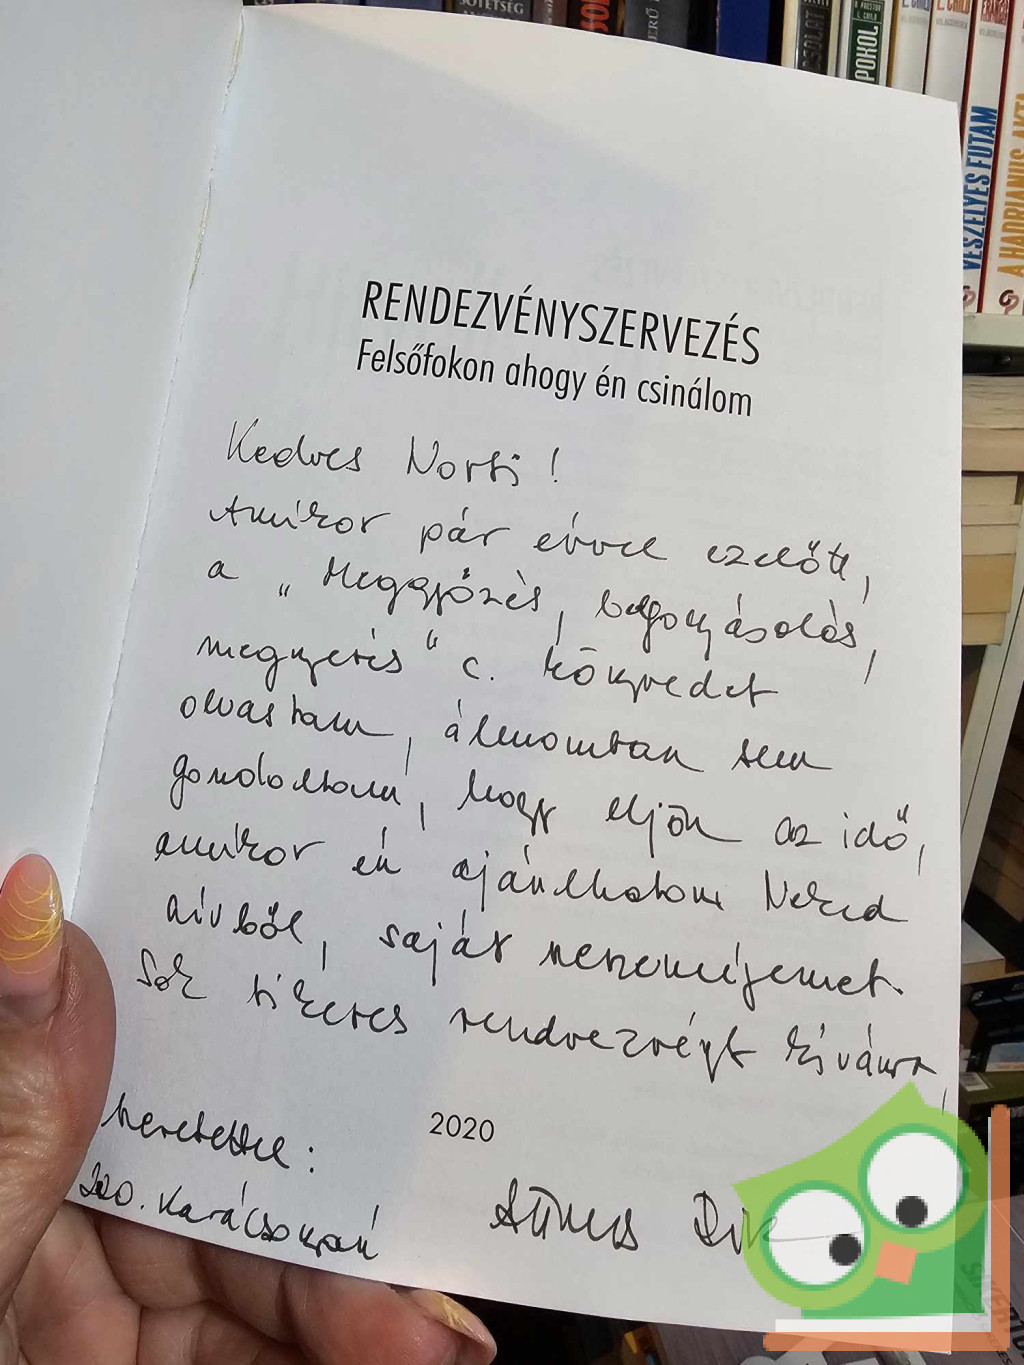 SÖTÉTSÉG
POKOL
VESZÉLYES FUTAM
A HADRIANUS-AKTA
RENDEZVÉNYSZERVEZÉS
Felsőfokon ahogy én csinálom
Kedves Norbi!
Amikor pár évvel ezelőtt,
a „Meggyőzés, befolyásolás,
megnyerés" c. könyvedet
olvastam, álmomban sem
gondoltam, hogy eljön az idő,
amikor én ajánlhatom Neked
szívből, saját
Sok sikeres rendvezvényt kívánva,
szeretettel:
2020
2020. Karácsonyán